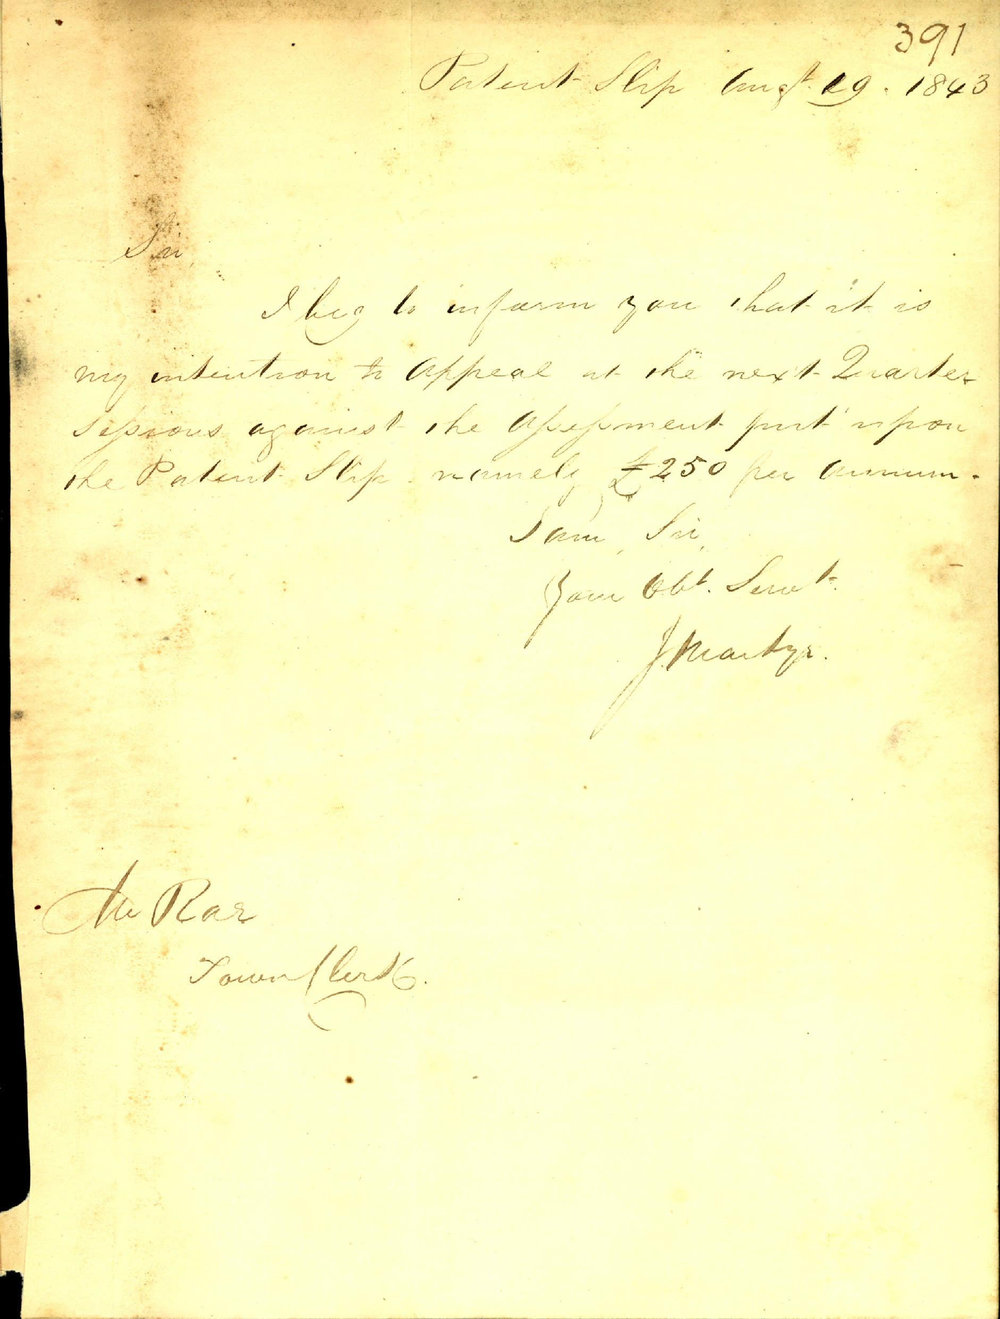 391
Patent Slip Augt. 19. 1843
Sir,
I beg to inform you that it is
my intention to appeal at the next Quarter
Sessions against the Assessment put upon
the Patent Slip namely £250 per annum.
I am, Sir,
Your Obt. Servt.
J. Martyr.
Mr Rae
Town Clerk.